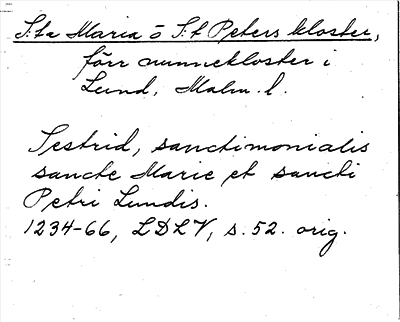 S:ta Maria o S:t Peters kloster,
förr nunnekloster i
Lund, Malm. l.
Sestrid, sanctimonialis
sancte Marie et sancti
Petri Lundis.
1234-66, LDLV, s. 52. orig.